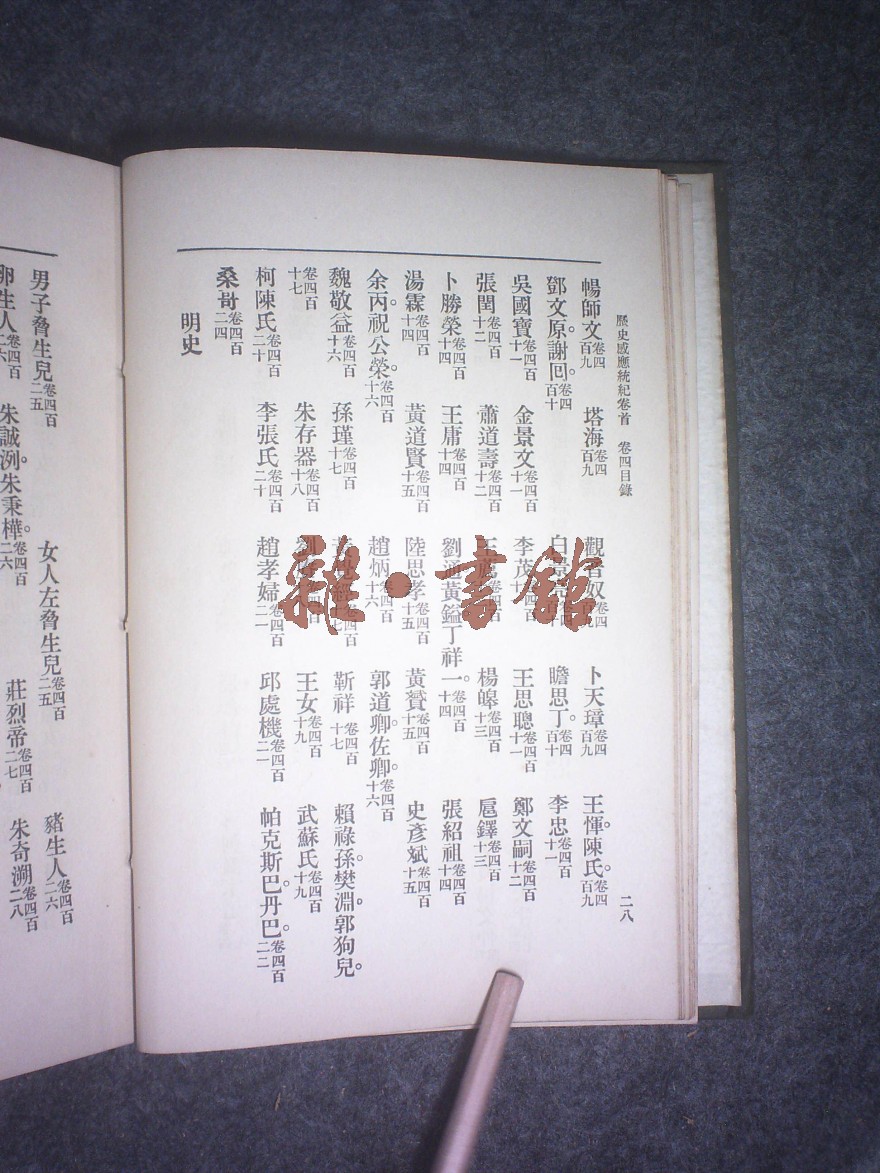 歷史感應統紀卷首 卷四目錄 二八
暢師文卷四百九 塔海卷四百九 觀音奴卷四 卜天璋卷四百九 王惲。陳氏。卷四百九
鄧文原。謝囘。卷四百十 白 瞻思丁。卷四百十 李忠卷四百十一
吳國寶卷四百十一 金景文卷四百十一 李茂卷四百十一 王思聰卷四百十一 鄭文嗣卷四百十二
張閏卷四百十二 蕭道壽卷四百十二 王薦卷四百 楊皞卷四百十三 扈鐸卷四百十三
卜勝榮卷四百十四 王庸卷四百十四 劉通黃鎰丁祥一。卷四百十四 張紹祖卷四百十四
湯霖卷四百十四 黃道賢卷四百十五 陸思孝卷四百十五 黃贇卷四百十五 史彥斌卷四百十五
余丙。祝公榮。卷四百十六 趙炳卷四百十六 郭道卿。佐卿。卷四百十六
魏敬益卷四百十六 孫瑾卷四百十七 卷四百十七 靳祥卷四百十七 賴祿孫。樊淵。郭狗兒。
卷四百十七 朱存器卷四百十八 卷四百 王女卷四百十九 武蘇氏卷四百十九
柯陳氏卷四百二十 李張氏卷四百二十 趙孝婦卷四百二一 邱處機卷四百二一 帕克斯巴。丹巴。卷四百二二
桑哥卷四百二四
明史
男子脅生兒卷四百二五 女人左脅生兒卷四百二五 豬生人卷四百二六
卵生人卷四百二六 朱誠洌。朱秉樺。卷四百二六 莊烈帝卷四百二七 朱奇溯卷四百二八
雜·書館